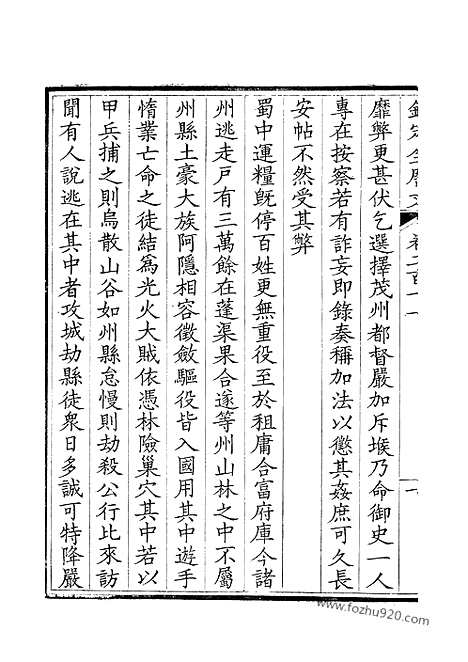 欽定全唐文 卷二百十一
靡弊更甚伏乞選擇茂州都督嚴加斥堠乃命御史一人
專在按察若有詐妄即錄奏稱加法以懲其姦庶可久長
安帖不然受其弊
蜀中運糧既停百姓更無重役至於租庸合富府庫今諸
州逃走戶有三萬餘在蓬渠果合遂等州山林之中不屬
州縣土豪大族阿隱相容徵斂驅役皆入國用其中遊手
惰業亡命之徒結為光火大賊依憑林險巢穴其中若以
甲兵捕之則烏散山谷如州縣怠慢則劫殺公行比來訪
聞有人說逃在其中者攻城劫縣徒衆日多誠可特降嚴
www.fozhu920.com